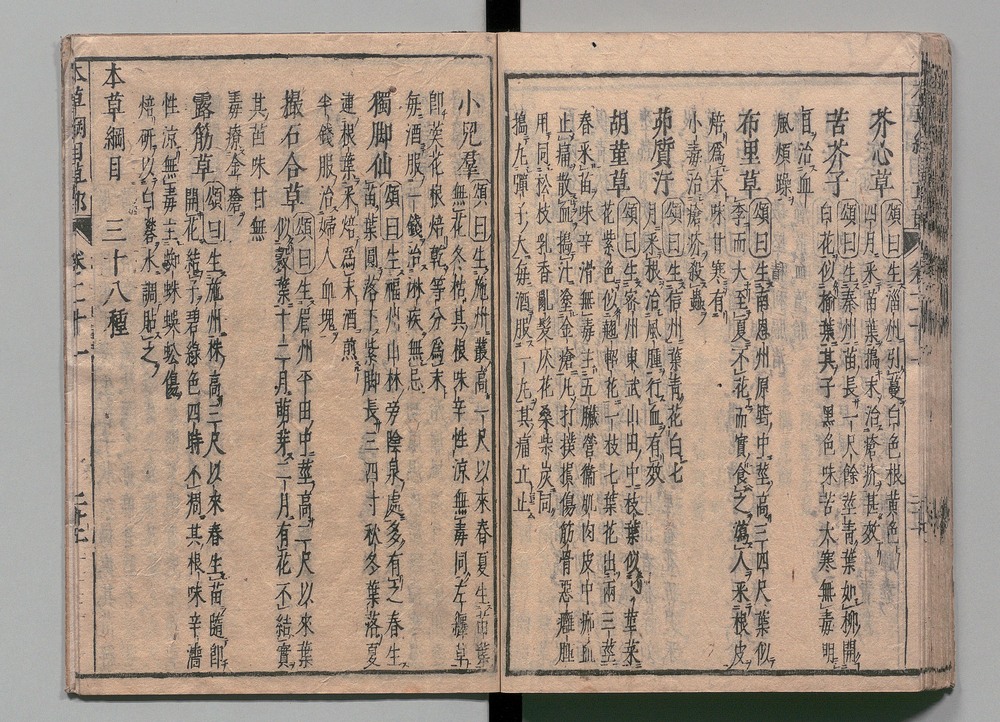 芥心草 頌曰生淄州引蔓白色根黃色
四月采苗葉搗末治瘡疥甚效
苦芥子 頌曰生秦州苗長一尺餘莖靑葉如柳開
白花似榆莢其子黑色味苦大寒無毒明
目治血
風煩躁
布里草 頌曰生南恩州原野中莖高三四尺葉似
李而大至夏不花而實食之瀉人采根皮
焙爲末味甘寒有
小毒治瘡疥殺蟲
茆質汗 頌曰生信州葉靑花白七
月采根治風腫行血有效
胡菫草 頌曰生密州東武山田中枝葉似小菫菜
花紫色似翹軺花一枝七葉花出兩三莖
春采苗味辛滑無毒主五臟營衞肌肉皮中瘀血
止痛散血搗汁塗金瘡凡打撲損傷筋骨惡癰腫
用同松枝乳香亂髮灰花桑柴炭同
搗丸彈子大每酒服一丸其痛立止
小兒羣 頌曰生施州叢高一尺以來春夏生苗葉
無花冬枯其根味辛性涼無毒同左纏草
卽旋花根焙乾等分爲末
每酒服一錢治淋疾無忌
獨脚仙 頌曰生福州山林旁陰泉處多有之春生
苗葉圓落下紫脚長三四寸秋冬葉落夏
連根葉采焙爲末酒煎
半錢服治婦人血塊
撮石合草 頌曰生眉州平田中莖高二尺以來葉
似穀葉十二月萌芽二月有花不結實
其苗味甘無
毒療金瘡
露筋草 頌曰生施州株高三尺以來春生苗隨卽
開花結子碧綠色四時不凋其根味辛濇
性涼無毒主蜘蛛蜈蚣傷
焙研以白礬水調貼之
本草綱目 三十八種
本草綱目草部 卷二十一